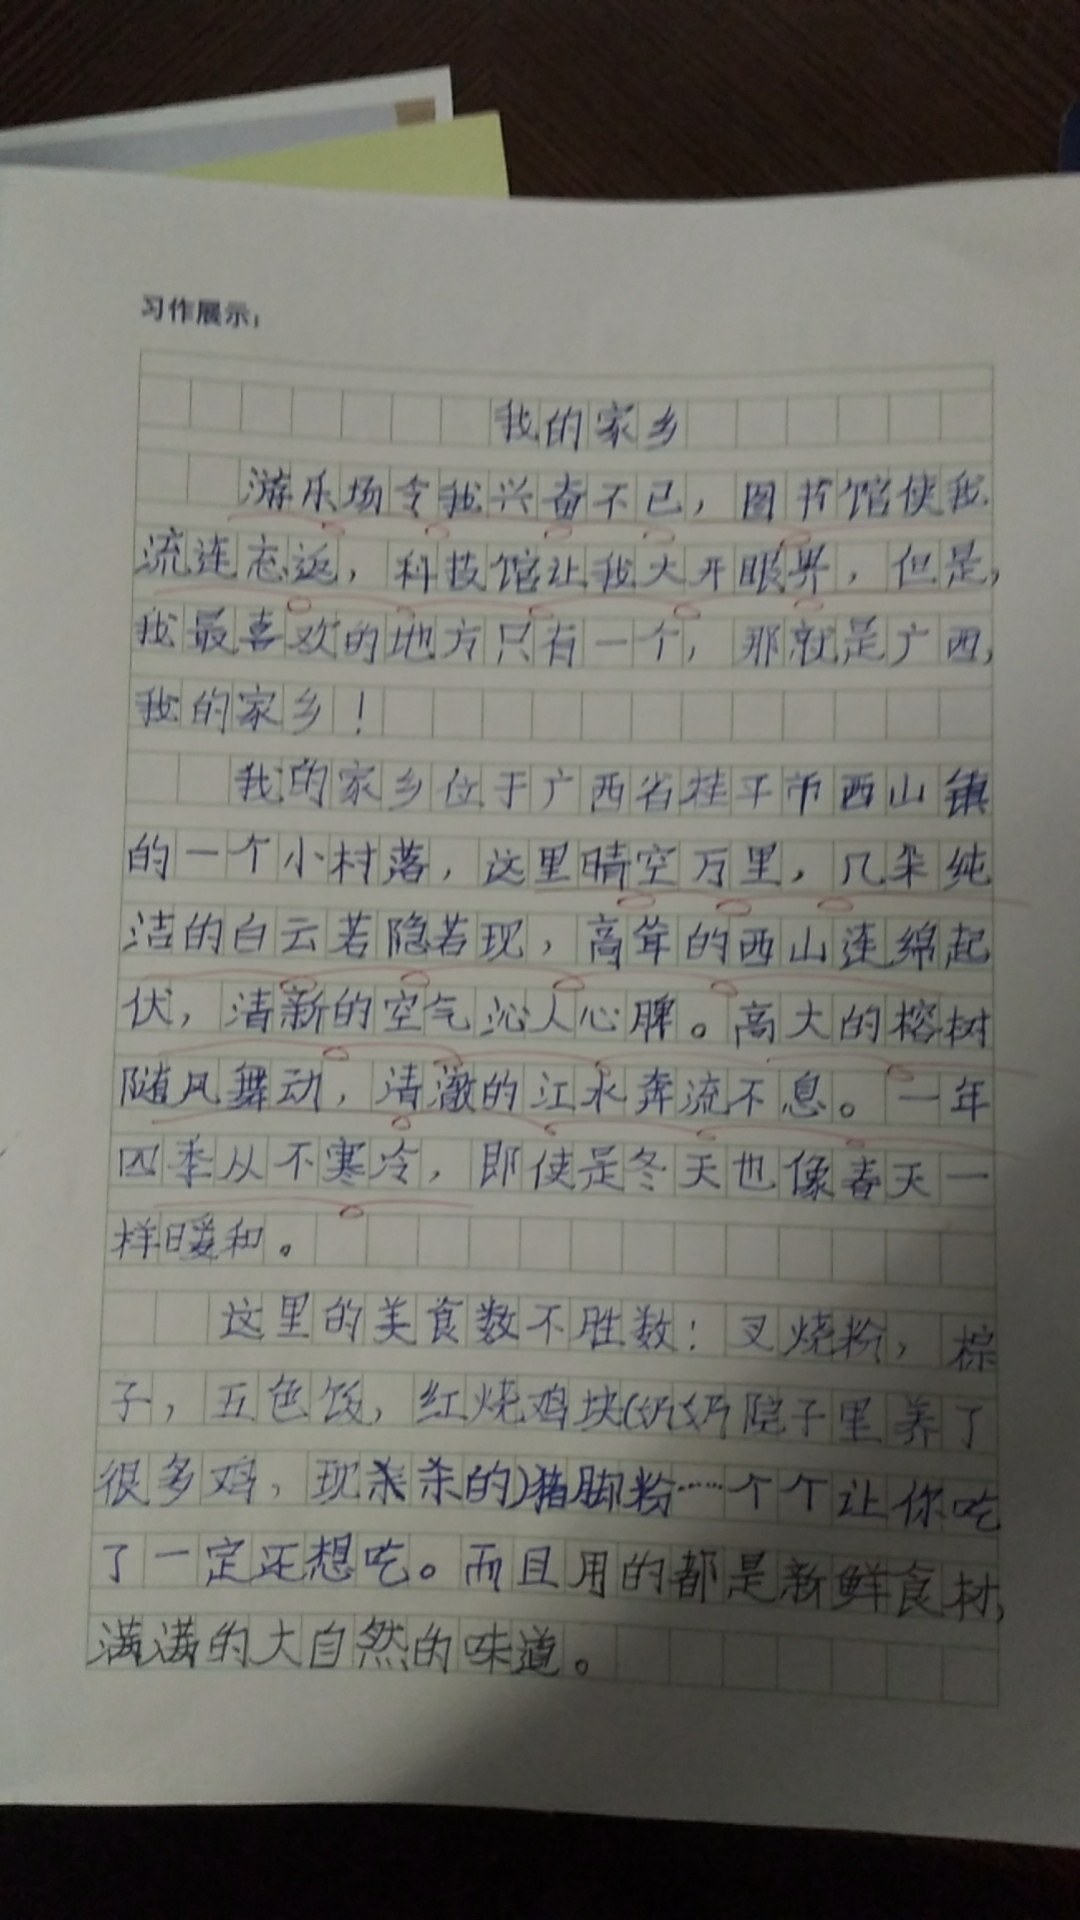 习作展示：
我的家乡
游乐场令我兴奋不已，图书馆使我
流连忘返，科技馆让我大开眼界，但是，
我最喜欢的地方只有一个，那就是广西，
我的家乡！
我的家乡位于广西省桂平市西山镇
的一个小村落，这里晴空万里，几朵纯
洁的白云若隐若现，高耸的西山连绵起
伏，清新的空气沁人心脾。高大的榕树
随风舞动，清澈的江水奔流不息。一年
四季从不寒冷，即使是冬天也像春天一
样暖和。
这里的美食数不胜数：叉烧粉，棕
子，五色饭，红烧鸡块(奶奶院子里养了
很多鸡，现杀杀的)猪脚粉……个个让你吃
了一定还想吃。而且用的都是新鲜食材，
满满的大自然的味道。